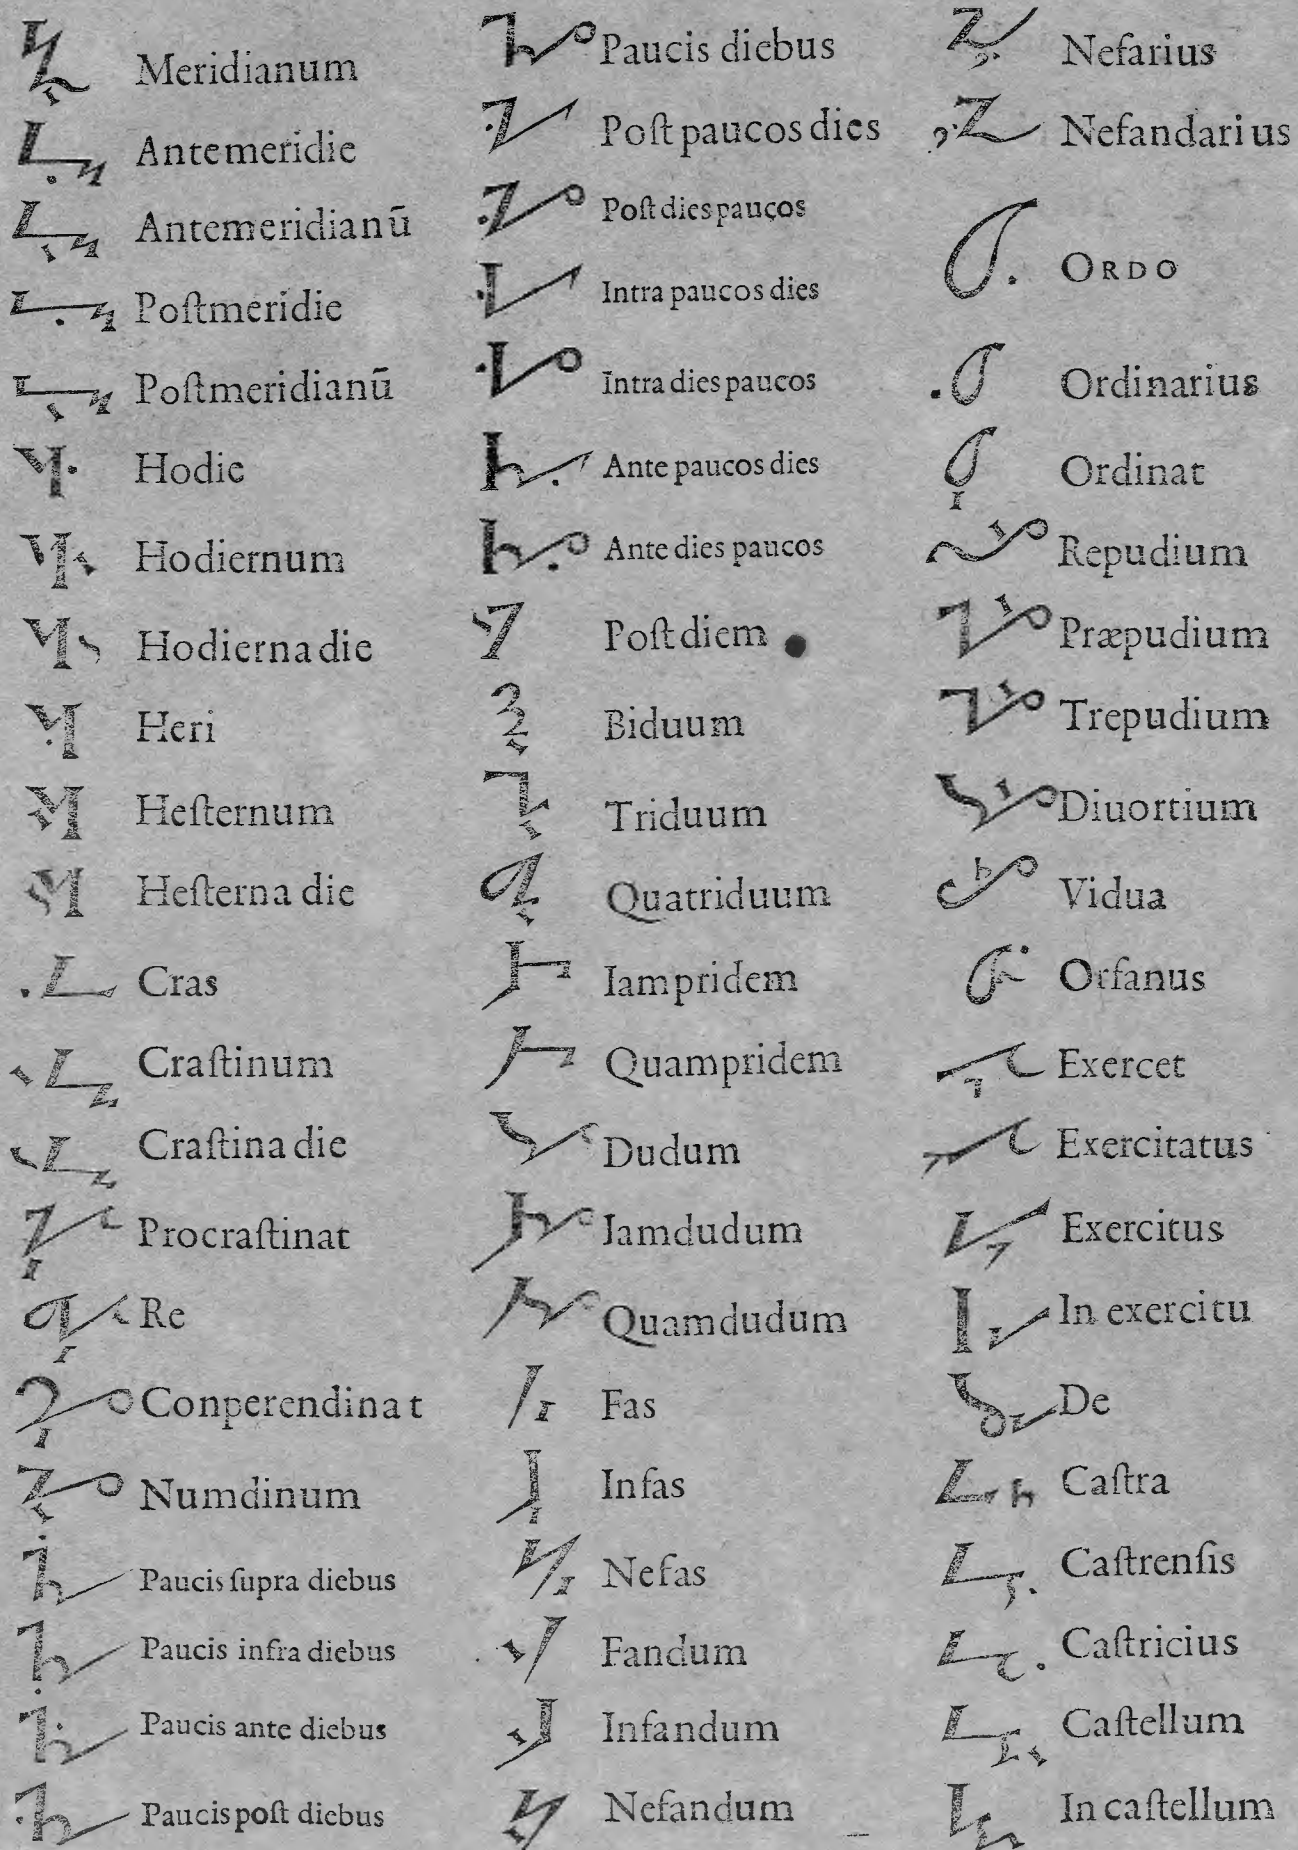 Meridianum
Antemeridie
Antemeridianū
Poſtmeridie
Poſtmeridianū
Hodie
Hodiernum
Hodierna die
Heri
Heſternum
Heſterna die
Cras
Craſtinum
Craſtina die
Procraſtinat
Re
Conperendinat
Numdinum
Paucis ſupra diebus
Paucis infra diebus
Paucis ante diebus
Paucis poſt diebus
Paucis diebus
Poſt paucos dies
Poſt dies paucos
Intra paucos dies
Intra dies paucos
Ante paucos dies
Ante dies paucos
Poſt diem
Biduum
Triduum
Quatriduum
Iampridem
Quampridem
Dudum
Iamdudum
Quamdudum
Fas
Infas
Nefas
Fandum
Infandum
Nefandum
Nefarius
Nefandarius
ORDO
Ordinarius
Ordinat
Repudium
Præpudium
Trepudium
Diuortium
Vidua
Orfanus
Exercet
Exercitatus
Exercitus
In exercitu
De
Caſtra
Caſtrenſis
Caſtricius
Caſtellum
In caſtellum